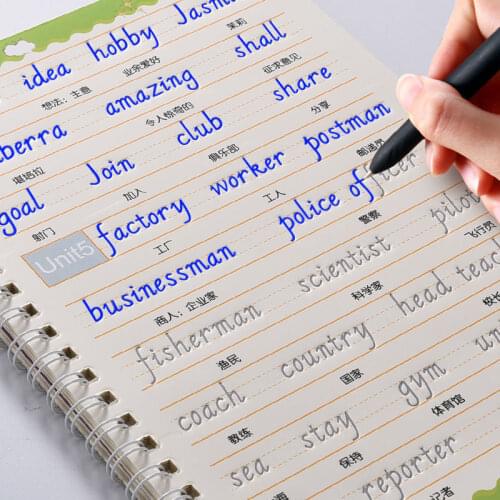 idea hobby Jasm
想法；主意 业余爱好 茉莉
berra amazing shall
堪培拉 令人惊奇的 征求意见
goal Join club share
射门 加入 俱乐部 分享
Unit5 factory worker postman
工厂 工人 邮递员
businessman police officer pilot
商人；企业家 警察 飞行员
fisherman scientist head teac
渔民 科学家 校长
coach country gym un
教练 国家 体育馆
sea stay reporter
海 保持 记者